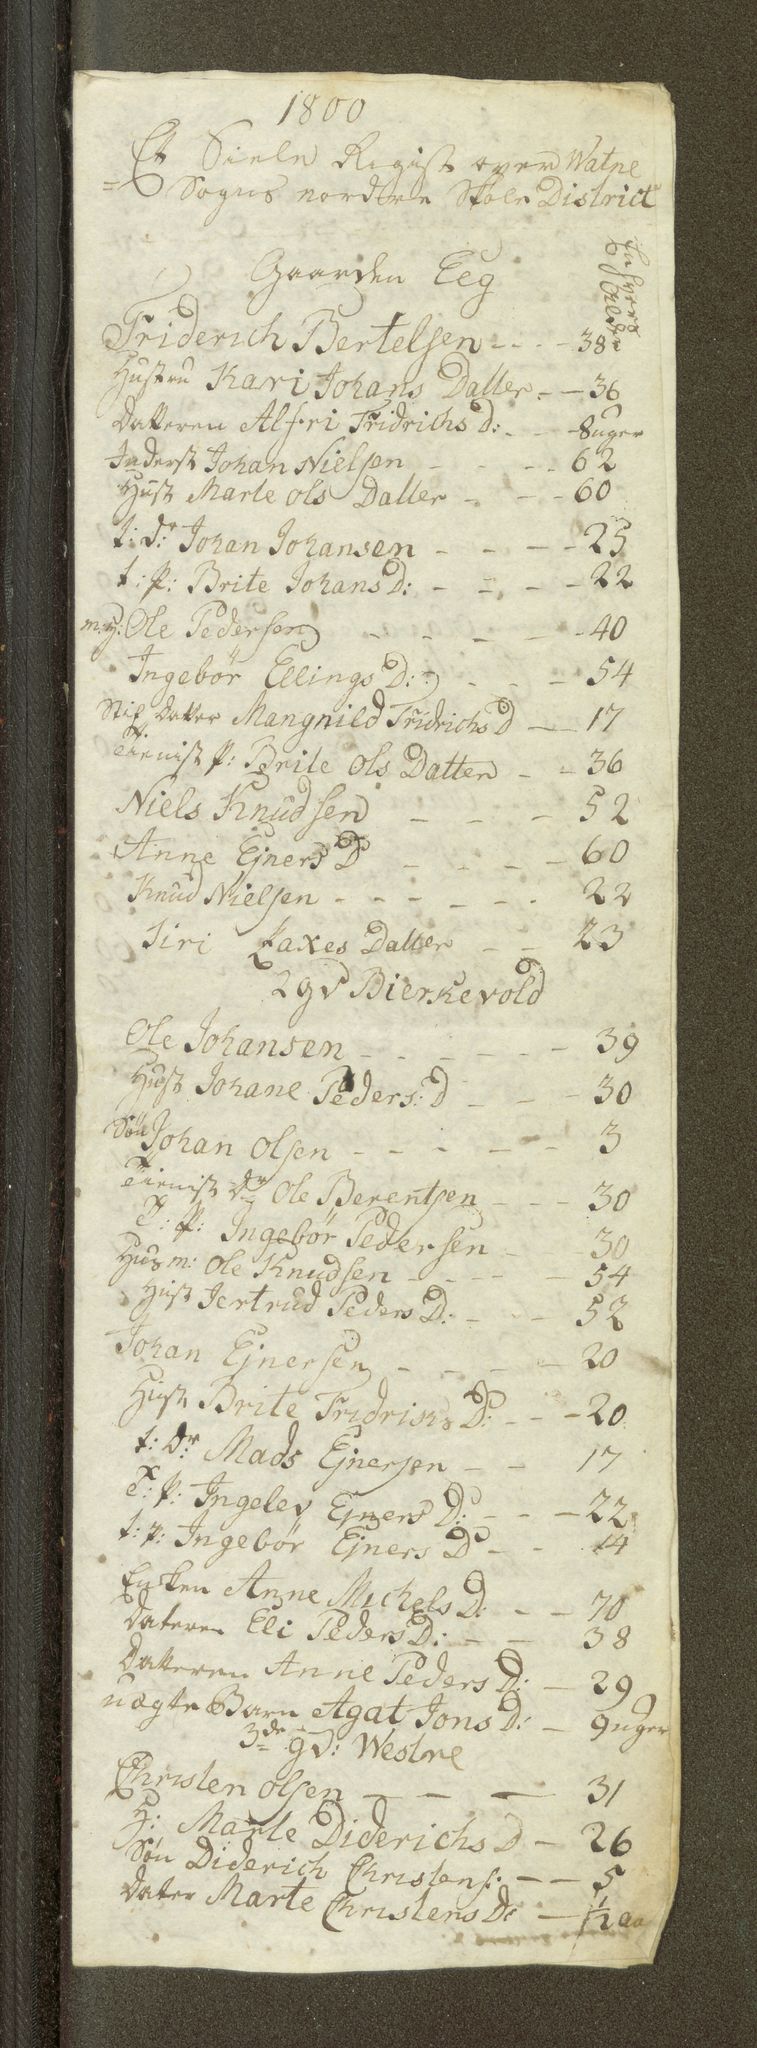 1800
Et Siele Regist over Watne
Sogns nordere Skole District
Enhvers
Alder
Gaarden Eeg
Friderich Bertelsen - - - 38
Hustru Kari Johans Datter - - 36
Datteren Alfri Fridrichs D: - - 8 uger
Inderst Johan Nielsen - - - 62
Hust Marte Ols Datter - - - 60
t: dr Johan Johansen - - - - 25
t: p: Brite Johans D: - - - - 22
Ole Pedersen - - - - - 40
Ingebör Ellings D: - - - 54
Stif Datter Mangnild Fridrichs D - - 17
Tienist p: Brite Ols Datter - - 36
Niels Knudsen - - - 52
Anne Ejners D - - - - 60
Knud Nielsen - - - - - - 22
Siri Jaxes Datter - - 23
2 gd Bierkevold
Ole Johansen - - - - - - 39
Hust Johane Peders: D - - - 30
Søn Johan Olsen - - - - - - 3
Tienist dr Ole Berentsen - - - 30
T: p: Ingebör Pedersen - 30
Husm: Ole Knudsen - - - - 54
Hust Jertrud Peders D: - - - 52
Johan Ejnersen - - - - 20
Hust Brite Fridrichs D: - - - 20
t: dr Mads Ejnersen - - 17
T: p: Ingelev Ejners D: - - - 22
t: p: Ingebör Ejners D - - 14
Enken Anne Michels D: - - 70
Dateren Eli Peders D: - - 38
Datteren Anne Peders D: - 29
uægte Barn Agat Jons D: - 9 uger
3de gd: Westre
Christen Olsen - - - - 31
H: Marte Diderichs D - 26
Søn Diderich Christens: - - 5
Dater Marte Christens D: - 1/2 aa